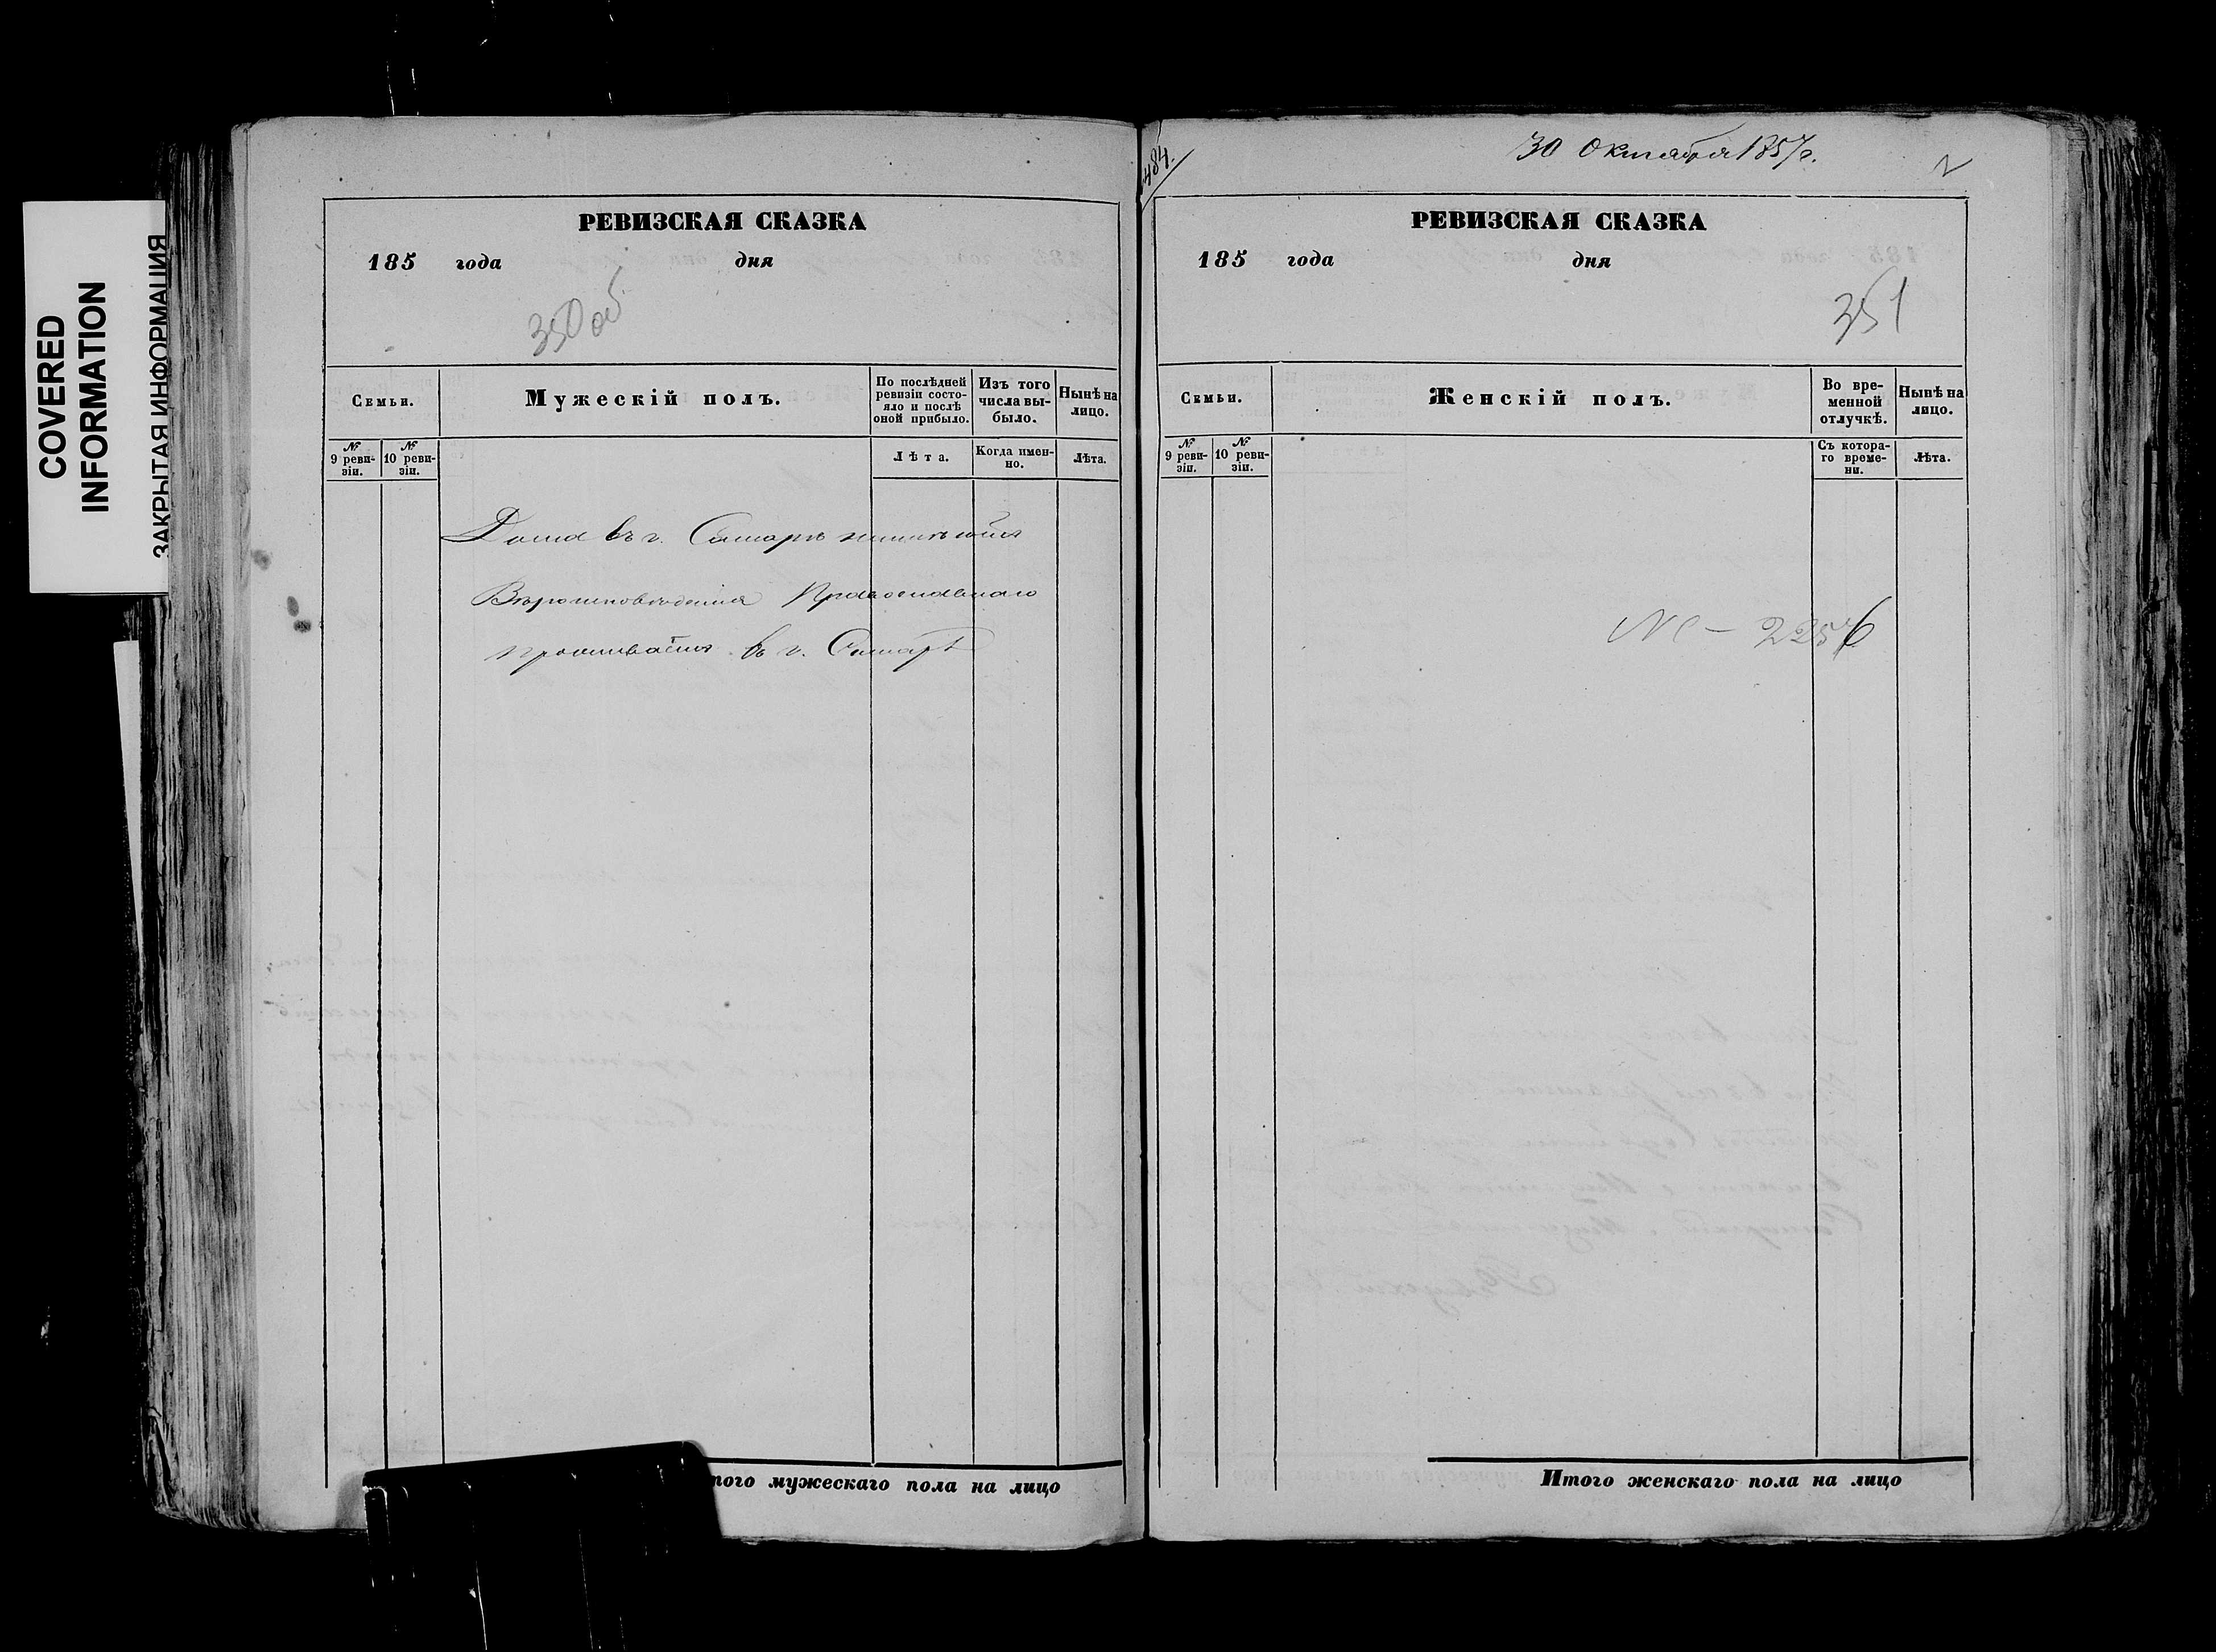 COVERED
INFORMATION
ЗАКРЫТАЯ ИНФОРМАЦИЯ
РЕВИЗСКАЯ СКАЗКА
185 года дня
350 об
Семьи.
Мужескій полъ.
По послѣдней ревизіи состояло и послѣ оной прибыло.
Изъ того числа выбыло.
Нынѣ на лицо.
№ 9 ревизіи.
№ 10 ревизіи.
Лѣта.
Когда именно.
Лѣта.
Дома въ г. Самарѣ
Вѣроисповѣданія Православнаго
проживаетъ въ г. Самарѣ
того мужескаго пола на лицо
484.
30 Октября 1857 г.
2
РЕВИЗСКАЯ СКАЗКА
185 года дня
351
Семьи.
Женскій полъ.
Во временной отлучкѣ.
Нынѣ на лицо.
№ 9 ревизіи.
№ 10 ревизіи.
Съ котораго времени.
Лѣта.
№ – 2256
Итого женскаго пола на лицо